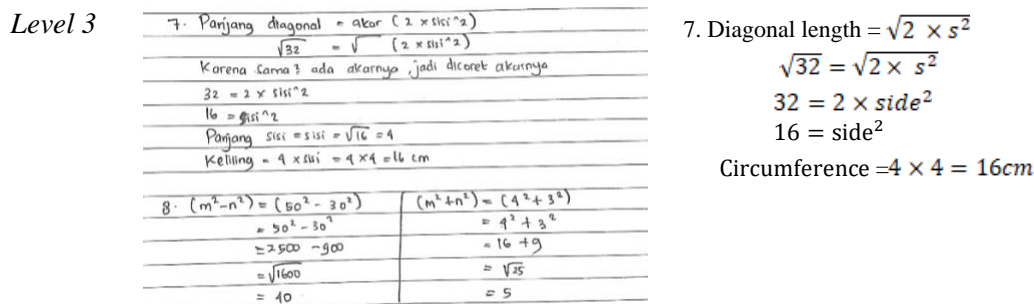 Level 3
7. Panjang diagonal = akar (2 x sisi^2)
√32 = √ (2 x sisi^2)
Karena sama2 ada akarnya, jadi dicoret akarnya
32 = 2 x sisi^2
16 = sisi^2
Panjang sisi = sisi = √16 = 4
Keliling = 4 x sisi = 4 x 4 = 16 cm
8. (m²-n²) = (50² - 30²)
= 50² - 30²
= 2500 - 900
= √1600
= 40
(m²+n²) = (4²+3²)
= 4² + 3²
= 16 + 9
= √25
= 5
7. Diagonal length = √2 × s²
√32 = √2 × s²
32 = 2 × side²
16 = side²
Circumference =4 × 4 = 16cm